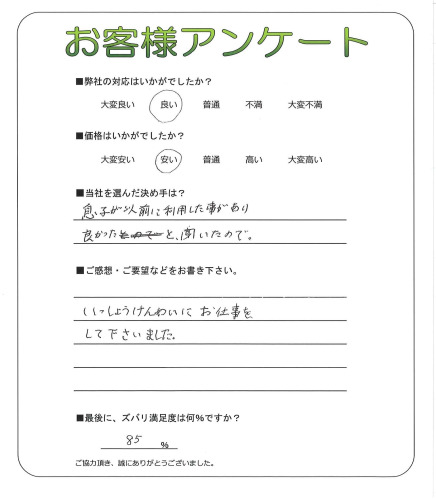 お客様アンケート
■弊社の対応はいかがでしたか？
大変良い 良い 普通 不満 大変不満
■価格はいかがでしたか？
大変安い 安い 普通 高い 大変高い
■当社を選んだ決め手は？
息子が以前に利用した事があり
良かったとのでと、聞いたので。
■ご感想・ご要望などをお書き下さい。
いっしょうけんめいに お仕事を
して下さいました。
■最後に、ズバリ満足度は何％ですか？
85 ％
ご協力頂き、誠にありがとうございました。